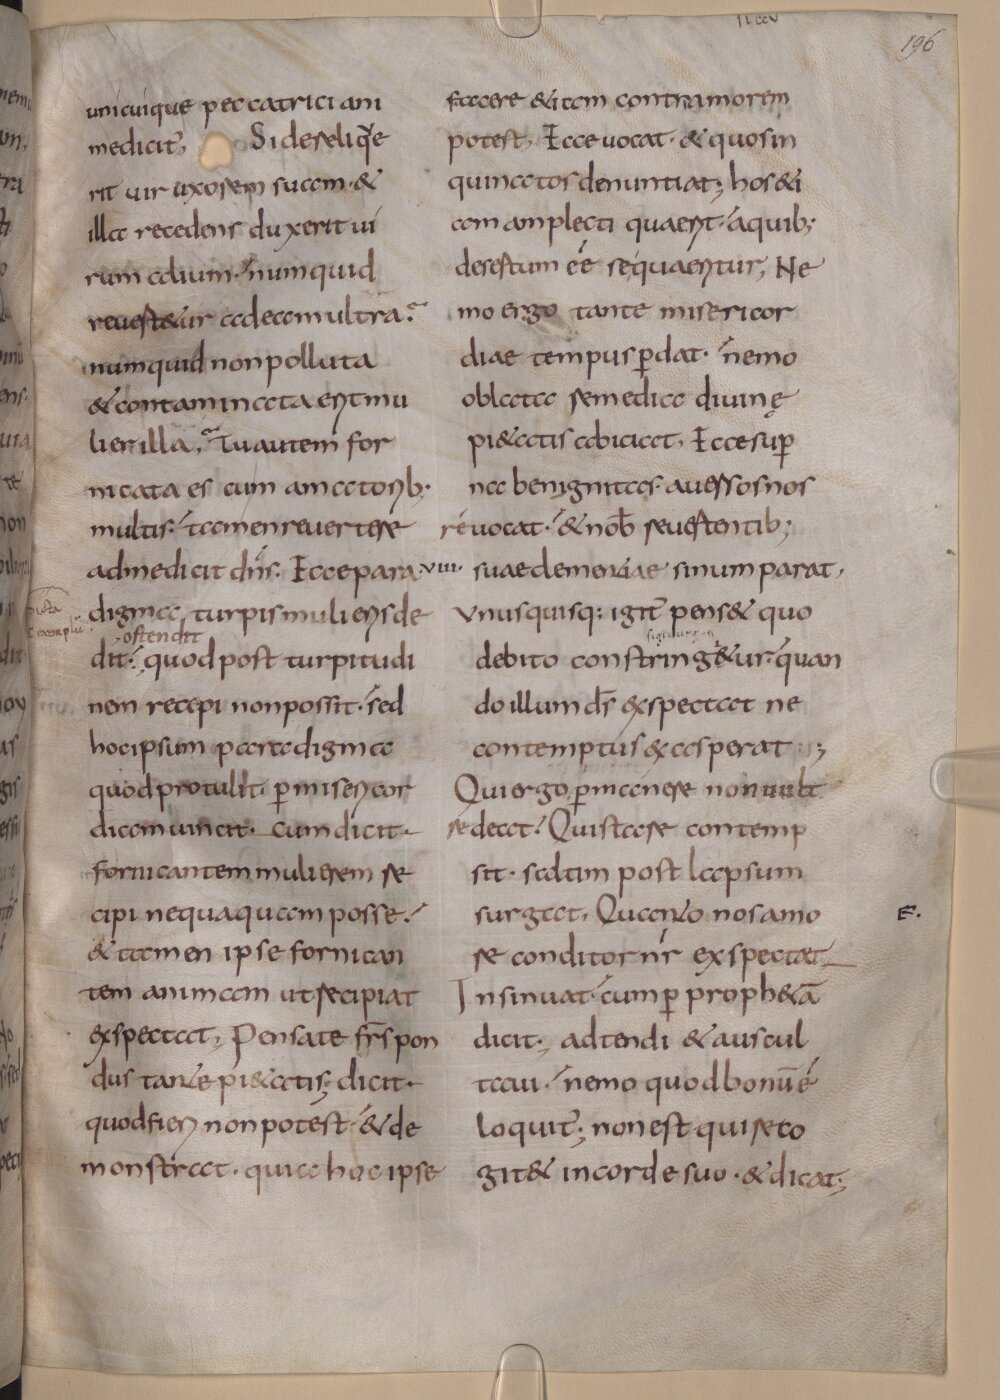 196
unicuique peccatrici ani
mę dicit͛, Si dereliq̄e
rit uir uxorem suam· &
illa recedens duxerit ui
rum alium· numquid
reuert&ur ad eam ultra?
numquid non polluta
& contaminata erit mu
lier illa? Tu autem for
nicata es cum amatorib;
multis· tamen reuertere
ad me dicit dn̄s. Ecce para
digma turpis mulieris de
ostendit
dit; quod post turpitudi
nem recepi non possit· sed
hoc ipsum paradigma
quod protulit· p̱ misericor
diam uincit· cum dicit·
fornicantem mulierem re
cipi nequaquam posse·
& tamen ipse fornican
tem animam ut recipiat
exspectat, Pensate fr̄s pon
dus tante pi&atis; dicit·
quod fieri non potest· & de
monstrat· quia hoc ipse
facere &iam contra morem
potest, Ecce uocat· & quos in
quinatos denuntiat; hos &i
am amplecti quaerit· a quib;
desertum eē se quaeritur, Ne
mo ergo tante misericor
diae tempus p̱dat· nemo
oblata remedia diuinę
pi&atis abiciat, Ecce sup̱
na benignitas· auersos nos
reuocat· & nob̄ reuertentib;
VIII· suae clementiae sinum parat,
Unusquisq: igit͛ pens& quo
debito constring&ur· quan
do illum ds̄ exspectat ne
contemptus exasperat;
Qui ergo p̱manere non uult
redeat· Qui stare contemp
sit· saltim post lapsum
surgat, Quanto nos amo
re conditor nr̄ exspectat
Insinuat· cum p̱ proph&ā
dicit; adtendi & auscul
taui· nemo quod bonū ē
loquit͛; non est qui reco
git& in corde suo· & dicat;
E.